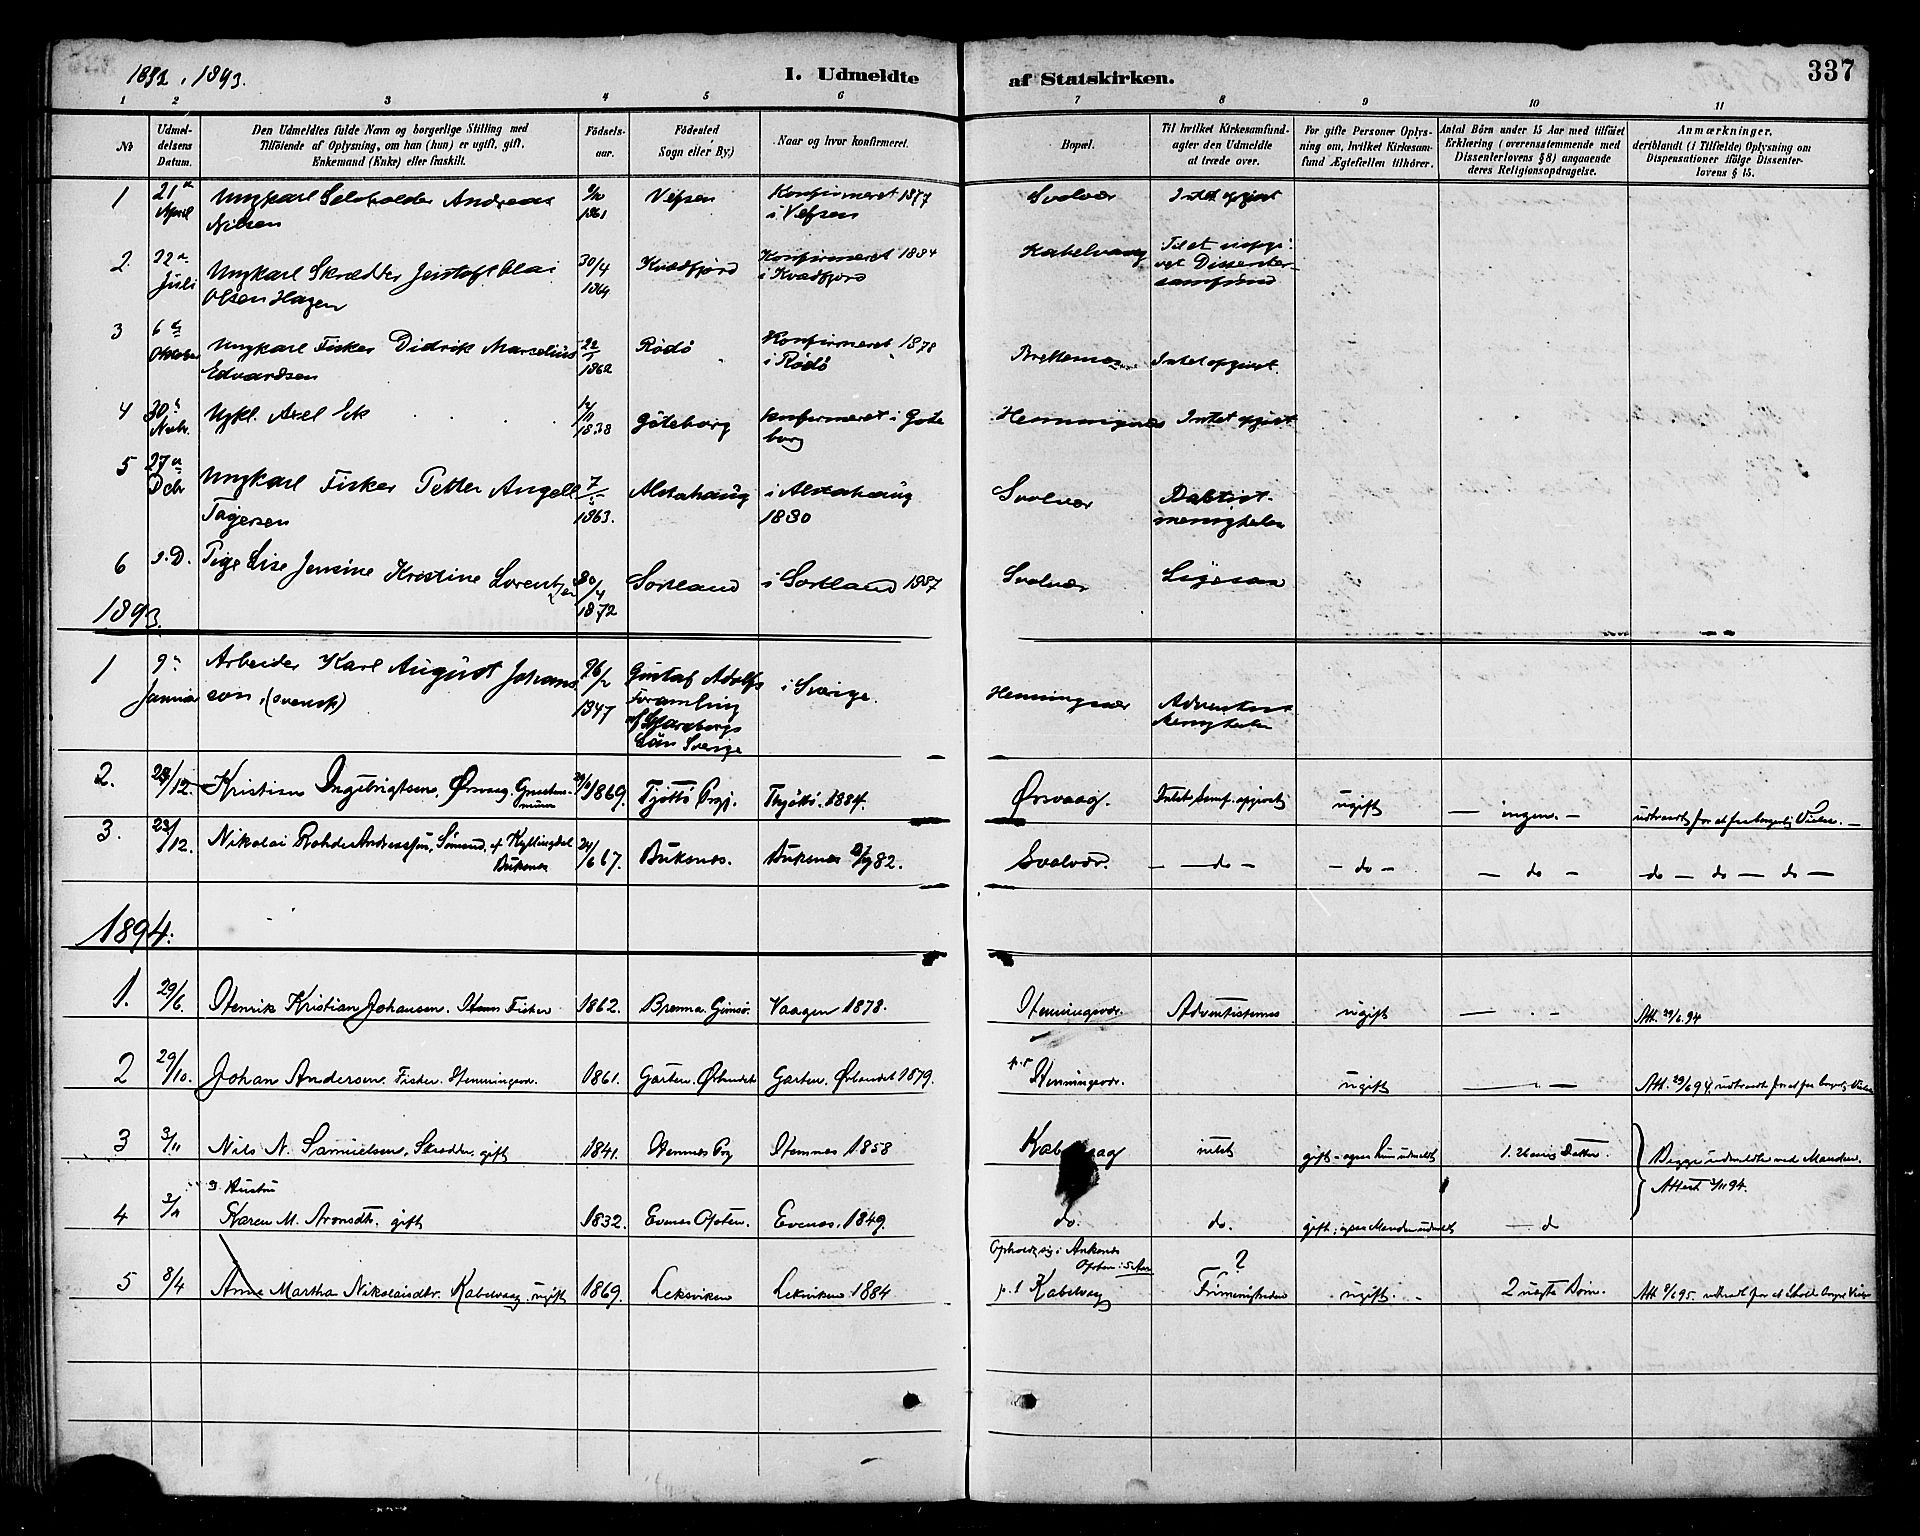 1892, 1893.
I. Udmeldte af Statskirken.
337
1 2 3 4 5 6 7 8 9 10 11
No
Udmel-
delsens
Datum.
Den Udmeldtes fulde Navn og borgerlige Stilling med
Tilföiende af Oplysning, om han (hun) er ugift, gift,
Enkemand (Enke) eller fraskilt.
Födsels-
aar.
Födested
Sogn eller By)
Naar og hvor konfirmeret.
Bopæl.
Til hvilket Kirkesamfund-
agter den Udmeldte
at træde over.
For gifte Personer Oplys-
ning om, hvilket Kirkesam-
fund Ægtefællen tilhörer.
Antal Börn under 15 Aar med tilföiet
Erklæring (overensstemmende med
Dissenterlovens § 8) angaaende
deres Religionsopdragelse.
Anmærkninger,
deriblandt (i Tilfælde) Oplysning om
Dispensationer ifölge Dissenter-
lovens § 15.
1 21 April Ungkarl Selvholder Andreas Nilsen 1861 Vefsen Konfirmeret 1877 i Vefsen Svolvær Intet opgivet
2. 22 Juli Ungkarl Skrædder Olai Olsen Hagen 30/4 1864 Kvædfjord Konfirmeret 1884 i Kvædfjord Kabelvaag Til et uopgivet Dissentersamfund
3 6 Oktober Ungkarl Fisker Didrik Marselius Edvardsen 22/1 1862 Rödö Konfirmeret 1878 i Rödö Brettesnæs Intet opgivet.
4 30 Novbr. Ugkl. Axel Ek 1838 Göteborg konfirmeret i Göteborg Henningsvær Intet opgivet
5 27 Dcbr Ungkarl Fisker Petter Angell Tagersen 7 1863. Alstahaug i Alstahaug 1880 Svolvær Babtistmenigheden
6 s. D. Pige Lise Jensine Kristine Lorentzen 30/4 1872 Sortland i Sortland 1887 Svolvær Ligesaa
1893.
1 9 Januar Arbeider Karl August Johansson, (svensk) 26/2 1847 Gustaf Adolfs Foramling af Skaraborgs Län Sverige i Sverige. Henningsvær Adventistmenigheden
2. 23/12. Kristian Ingebrigtsen, Ørsvaag 1869. Tjöttö Prgj. Thjöttö. 1884. Ørsvaag. Intet Samf. opgivet ugift — ingen. — udtraadt for at faa borgerlig Vielse. —
3. 23/12. Nikolai Rohde Andreassen, Sömand, af Kyllingdal Buksnes 24/6 67. Buksnes. Buksnes 82. Svolvær. — do — — do — — do — do — do — do —
1894.
1. 29/6. Henrik Kristian Johansen. Fisker 1862. Brenna. Gimsö. Vaagen 1878. Henningsvær. Adventisternes ugift — . — Att. 29/6. 94
2 29/10. Johan Andersen. Fisker. Henningsvær. 1861. Garten. Ørlandet Garten. Ørlandet 1879. Henningsvær. ugift — . — Att. 29/6 94. udtraadt for at faa borgerlig Vielse
3 3/11 Nils N. Samuelsen, Skrædder, gift 1841. Hemnes Prg Hemnes 1858 Kabelvaag intet gift – ogsaa hun udmeldt Begge udmeldte ved Manden. Attest 3/11 94.
4 3/11 Hustru Karen M. Aronsdtr. gift 1832. Evenes Ofoten. Evenes. 1849. do. do. gift; ogsaa Manden udmeldt — do
5 8/4 Anne Martha Nikolaisdtr. Kabelvaag. ugift 1869. Leksviken Leksviken 1884 Opholdt sig i Ankenes Ofoten i 5 Aar Kabelvaag ? Frimenigheden ugift. 2 uægte Börn.